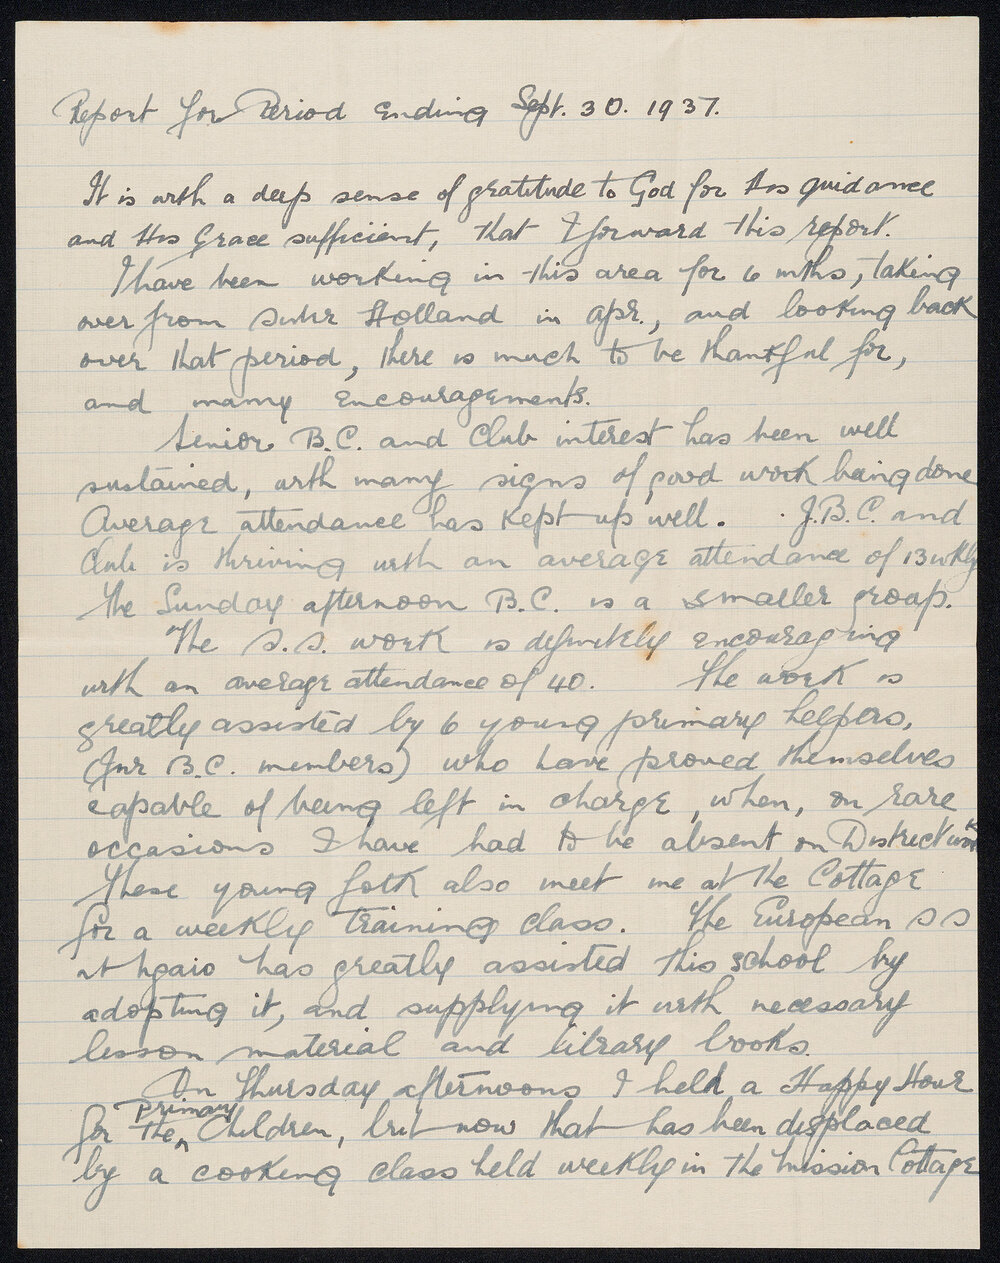 Report for Period Ending Sept. 30. 1937.
It is with a deep sense of gratitude to God for His guidance
and His Grace sufficient, that I forward this report.
I have been working in this area for 6 mths, taking
over from Sister Holland in Apr., and looking back
over that period, there is much to be thankful for,
and many encouragements.
Senior B.C. and Club interest has been well
sustained, with many signs of good work being done
Average attendance has kept up well. J.B.C. and
Club is thriving with an average attendance of 13 wkly
The Sunday afternoon B.C. is a smaller group.
The S.S. work is definitely encouraging
with an average attendance of 40. The work is
greatly assisted by 6 young primary helpers,
(Jnr B.C. members) who have proved themselves
capable of being left in charge, when, on rare
occasions I have had to be absent on District work
These young folk also meet me at the Cottage
for a weekly training class. The European S S
at Ngaio has greatly assisted this school by
adopting it, and supplying it with necessary
lesson material and library books.
On Thursday afternoons I held a Happy Hour
for the primary Children, but now that has been displaced
by a cooking class held weekly in the Mission Cottage